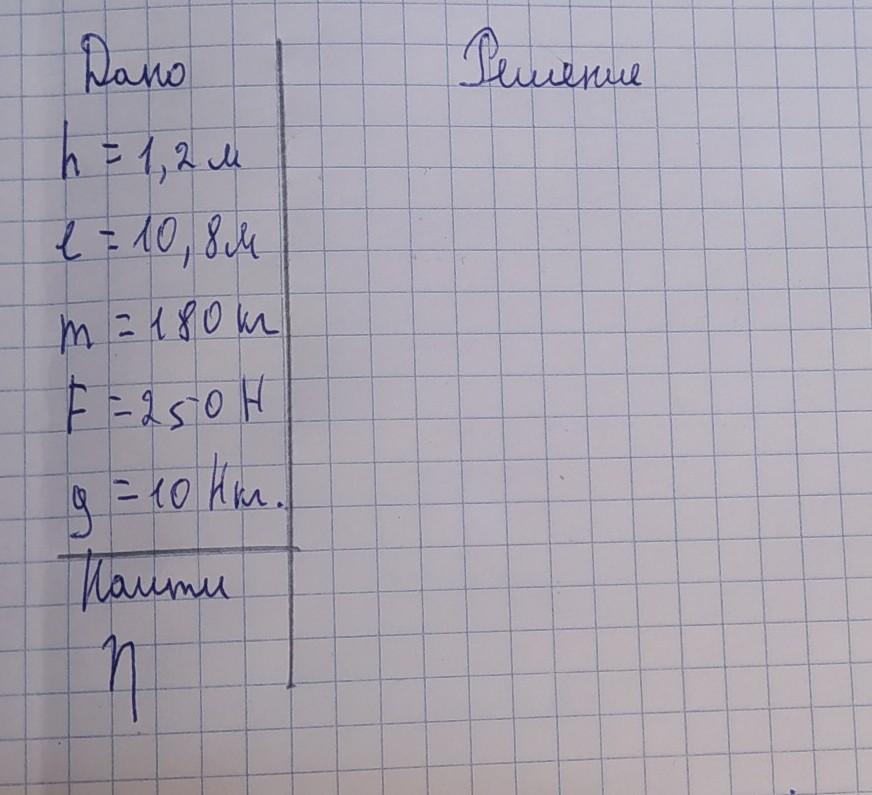 Дано
h = 1,2 м
l = 10,8 м
m = 180 кг
F = 250 Н
g = 10 Нкг.
Найти
η
Решение